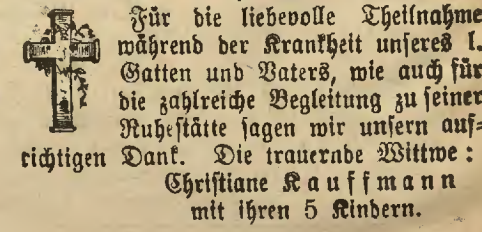 Für die liebevolle Theilnahme
während der Krankheit unseres l.
Gatten und Vaters, wie auch für
die zahlreiche Begleitung zu seiner
Ruhestätte sagen wir unsern auf-
richtigen Dank. Die trauernde Wittwe:
Christiane Kauffmann
mit ihren 5 Kindern.